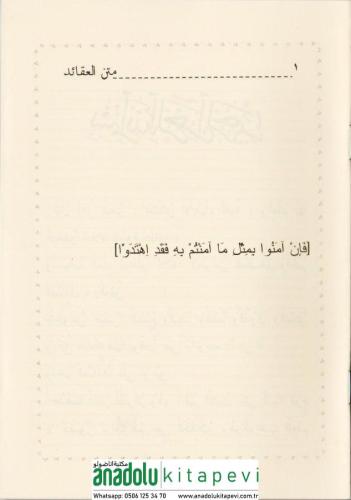 ١ متن العقائد
[فَإِنْ آمَنُوا بِمِثْلِ مَا آمَنْتُمْ بِهِ فَقَدِ اهْتَدَوْا]
مكتبة اناضولو
anadolukitapevi
Whatsapp: 0506 125 34 70 www.anadolukitapevi.com